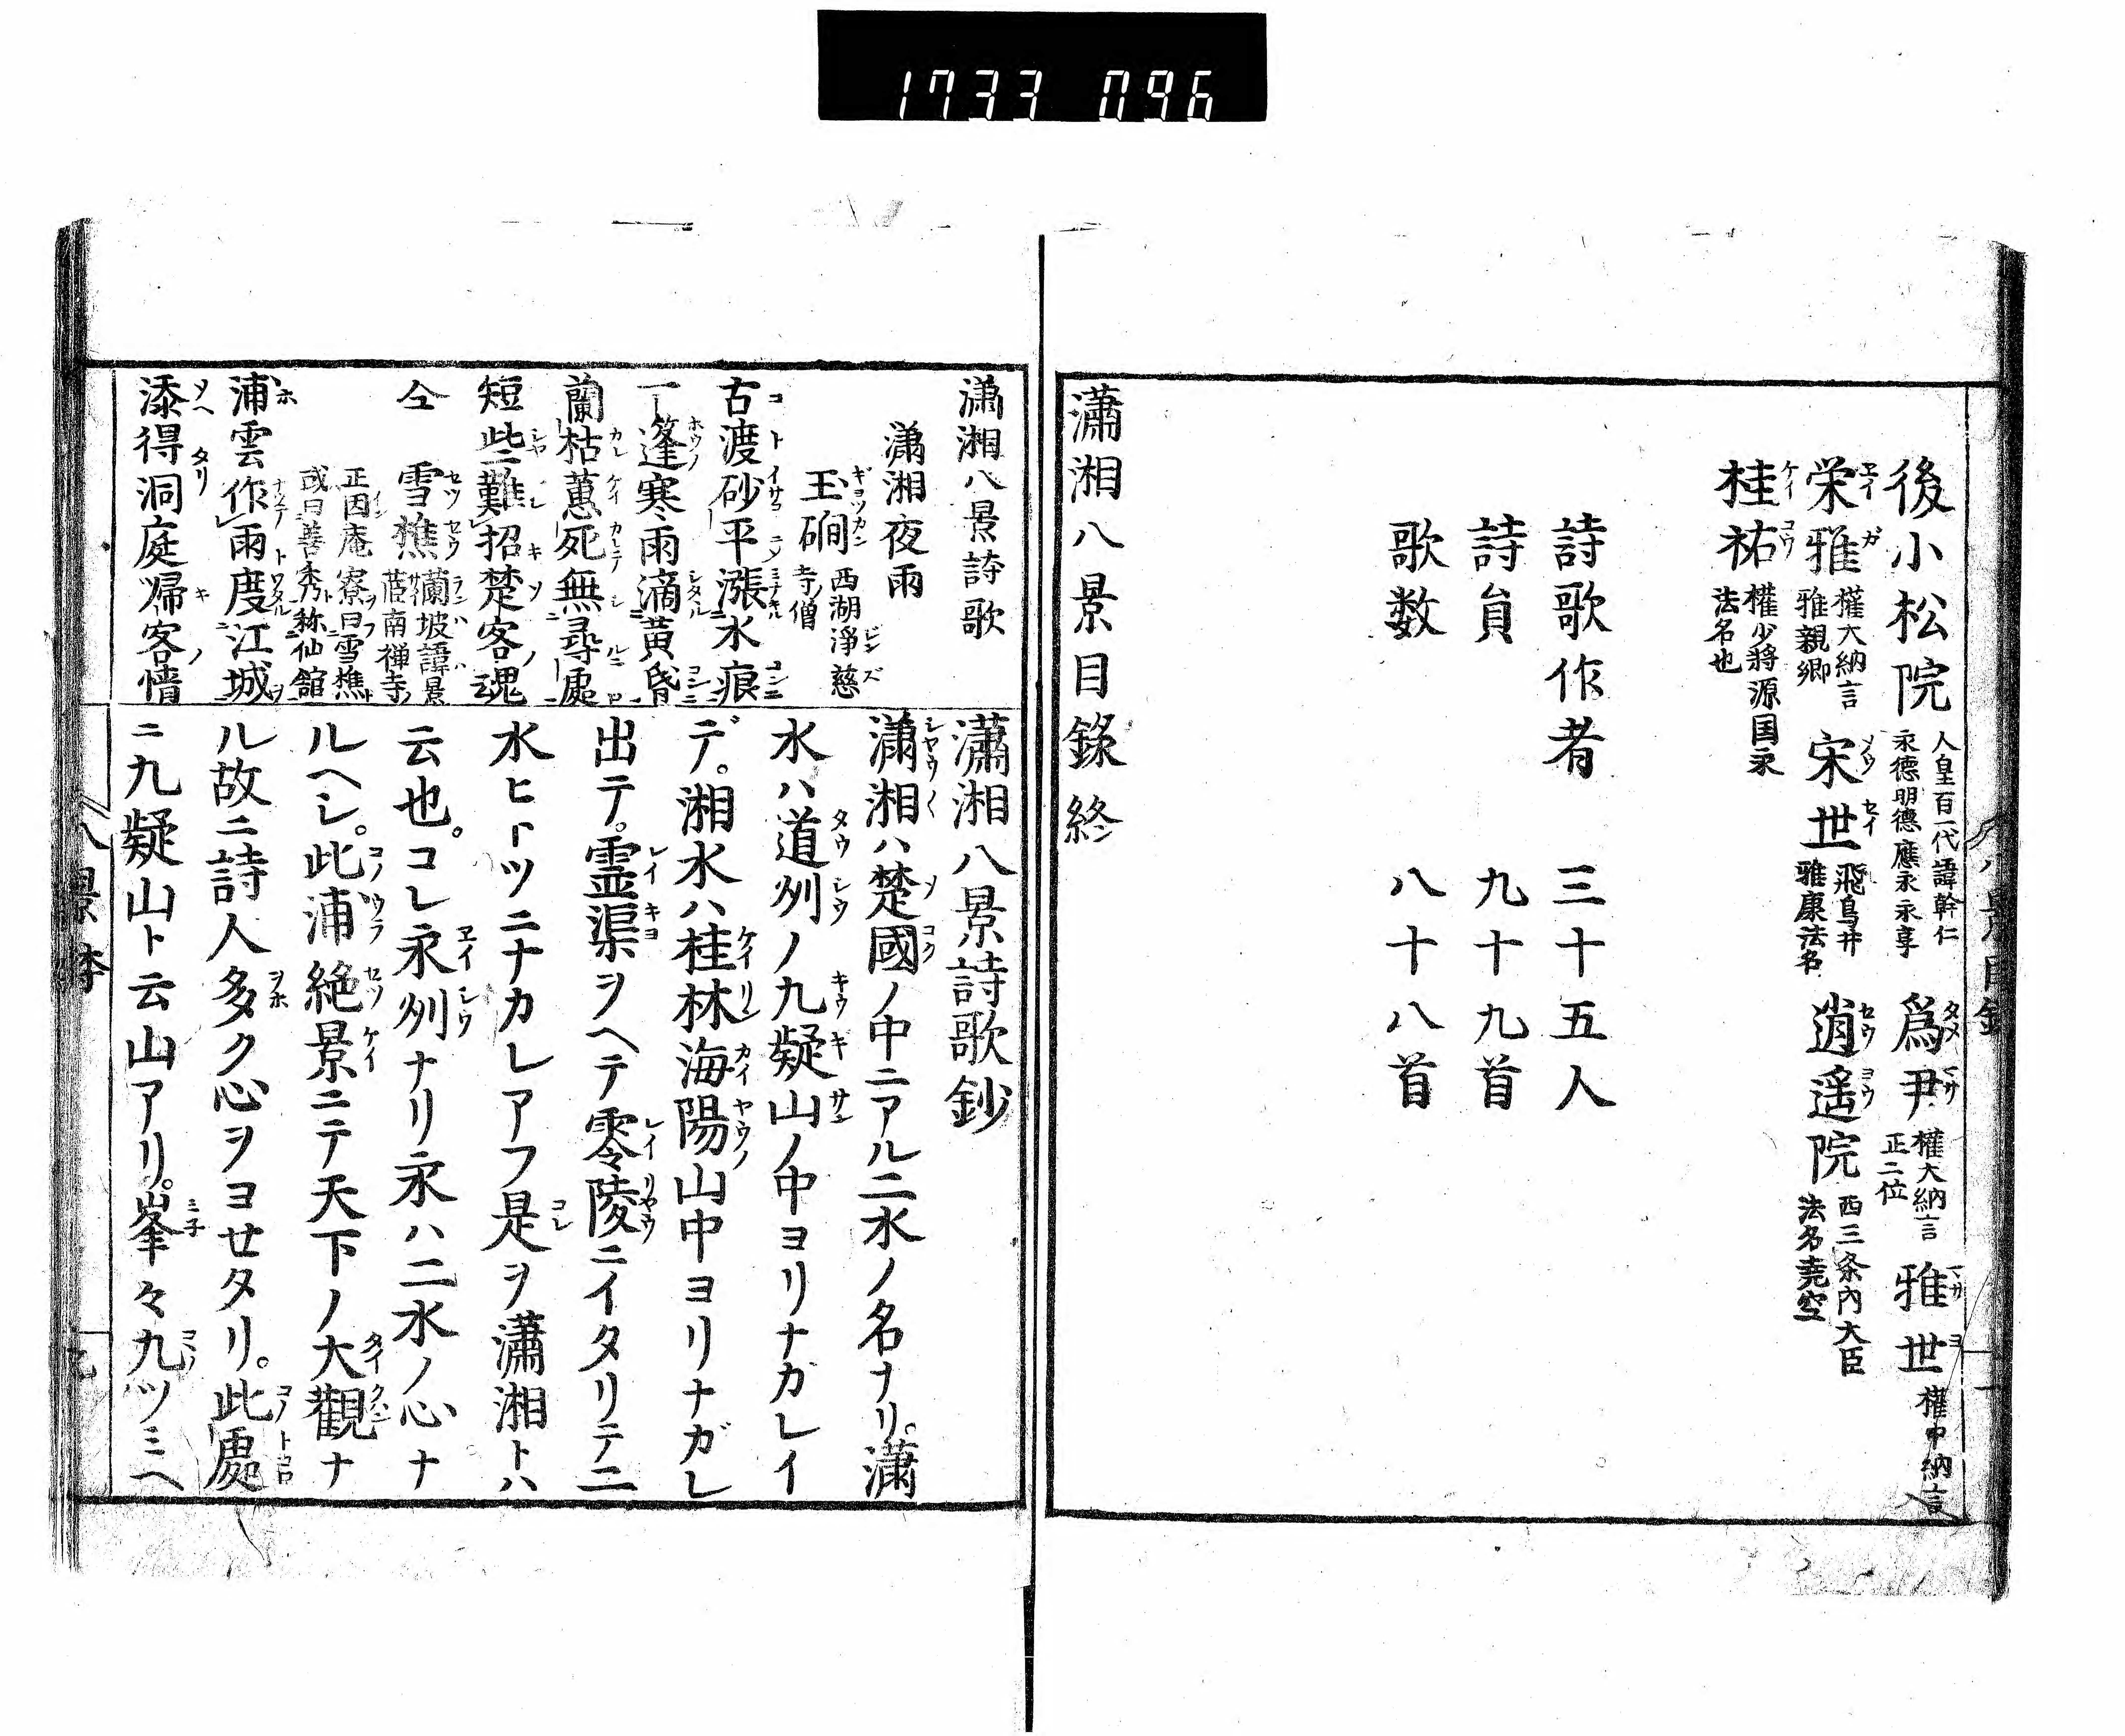 1733 096
後小松院 人皇百一代諱幹仁
永德明德應永永享 爲尹 權大納言
正二位 雅世 權中納言
栄雅 權大納言
雅親卿 宋世 飛鳥井
雅康法名 逍遥院 西三条内大臣
法名尭空
桂祐 權少將源国永
法名也
詩歌作者 三十五人
詩員 九十九首
歌数 八十八首
瀟湘八景目錄終
瀟湘八景詩歌
瀟湘夜雨
玉磵 西湖淨慈
寺ノ僧
古渡砂平漲水痕
一篷寒雨滴黄昏
蘭枯蕙死無尋處
短些難招楚客魂
仝 雪樵 蘭坡諱景
茝南禅寺
正因庵寮曰雪樵
或曰善秀称仙舘
浦雲作雨度江城
添得洞庭帰客情
瀟湘八景詩歌鈔
瀟湘ハ楚國ノ中ニアル二水ノ名ナリ。瀟
水ハ道州ノ九疑山ノ中ヨリナカレイ
デ。湘水ハ桂林海陽山中ヨリナガレ
出テ。霊渠ヲヘテ零陵ニイタリテ二
水ヒトツニナカレアフ是ヲ瀟湘トハ
云也。コレ永州ナリ永ハ二水ノ心ナ
ルヘシ。此浦絶景ニテ天下ノ大觀ナ
ル故ニ詩人多ク心ヲヨせタリ。此處
ニ九疑山ト云山アリ。峯々九ツミヘ